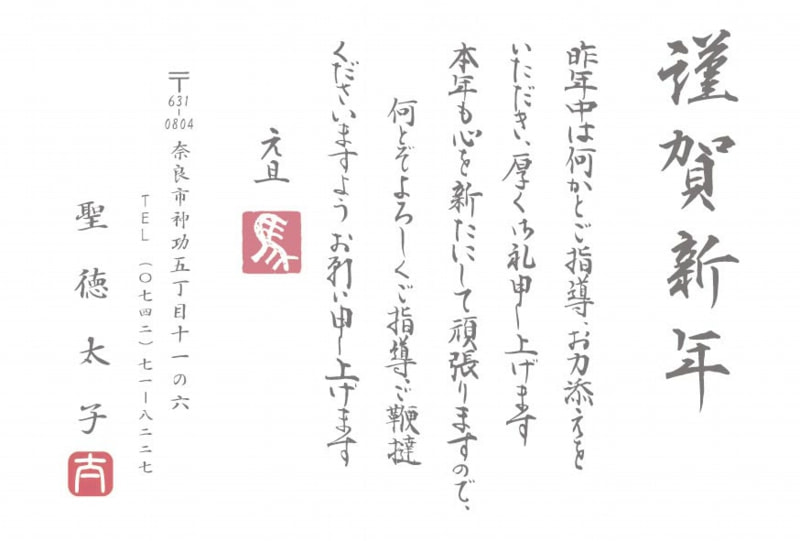 謹賀新年
昨年中は何かとご指導、お力添えを
いただき、厚く御礼申し上げます
本年も心を新たにして頑張りますので、
何とぞよろしくご指導、ご鞭撻
くださいますようお願い申し上げます
元旦
馬
〒631-0804 奈良市神功五丁目十一の六
TEL (〇七四二)七一ー八二二七
聖徳太子